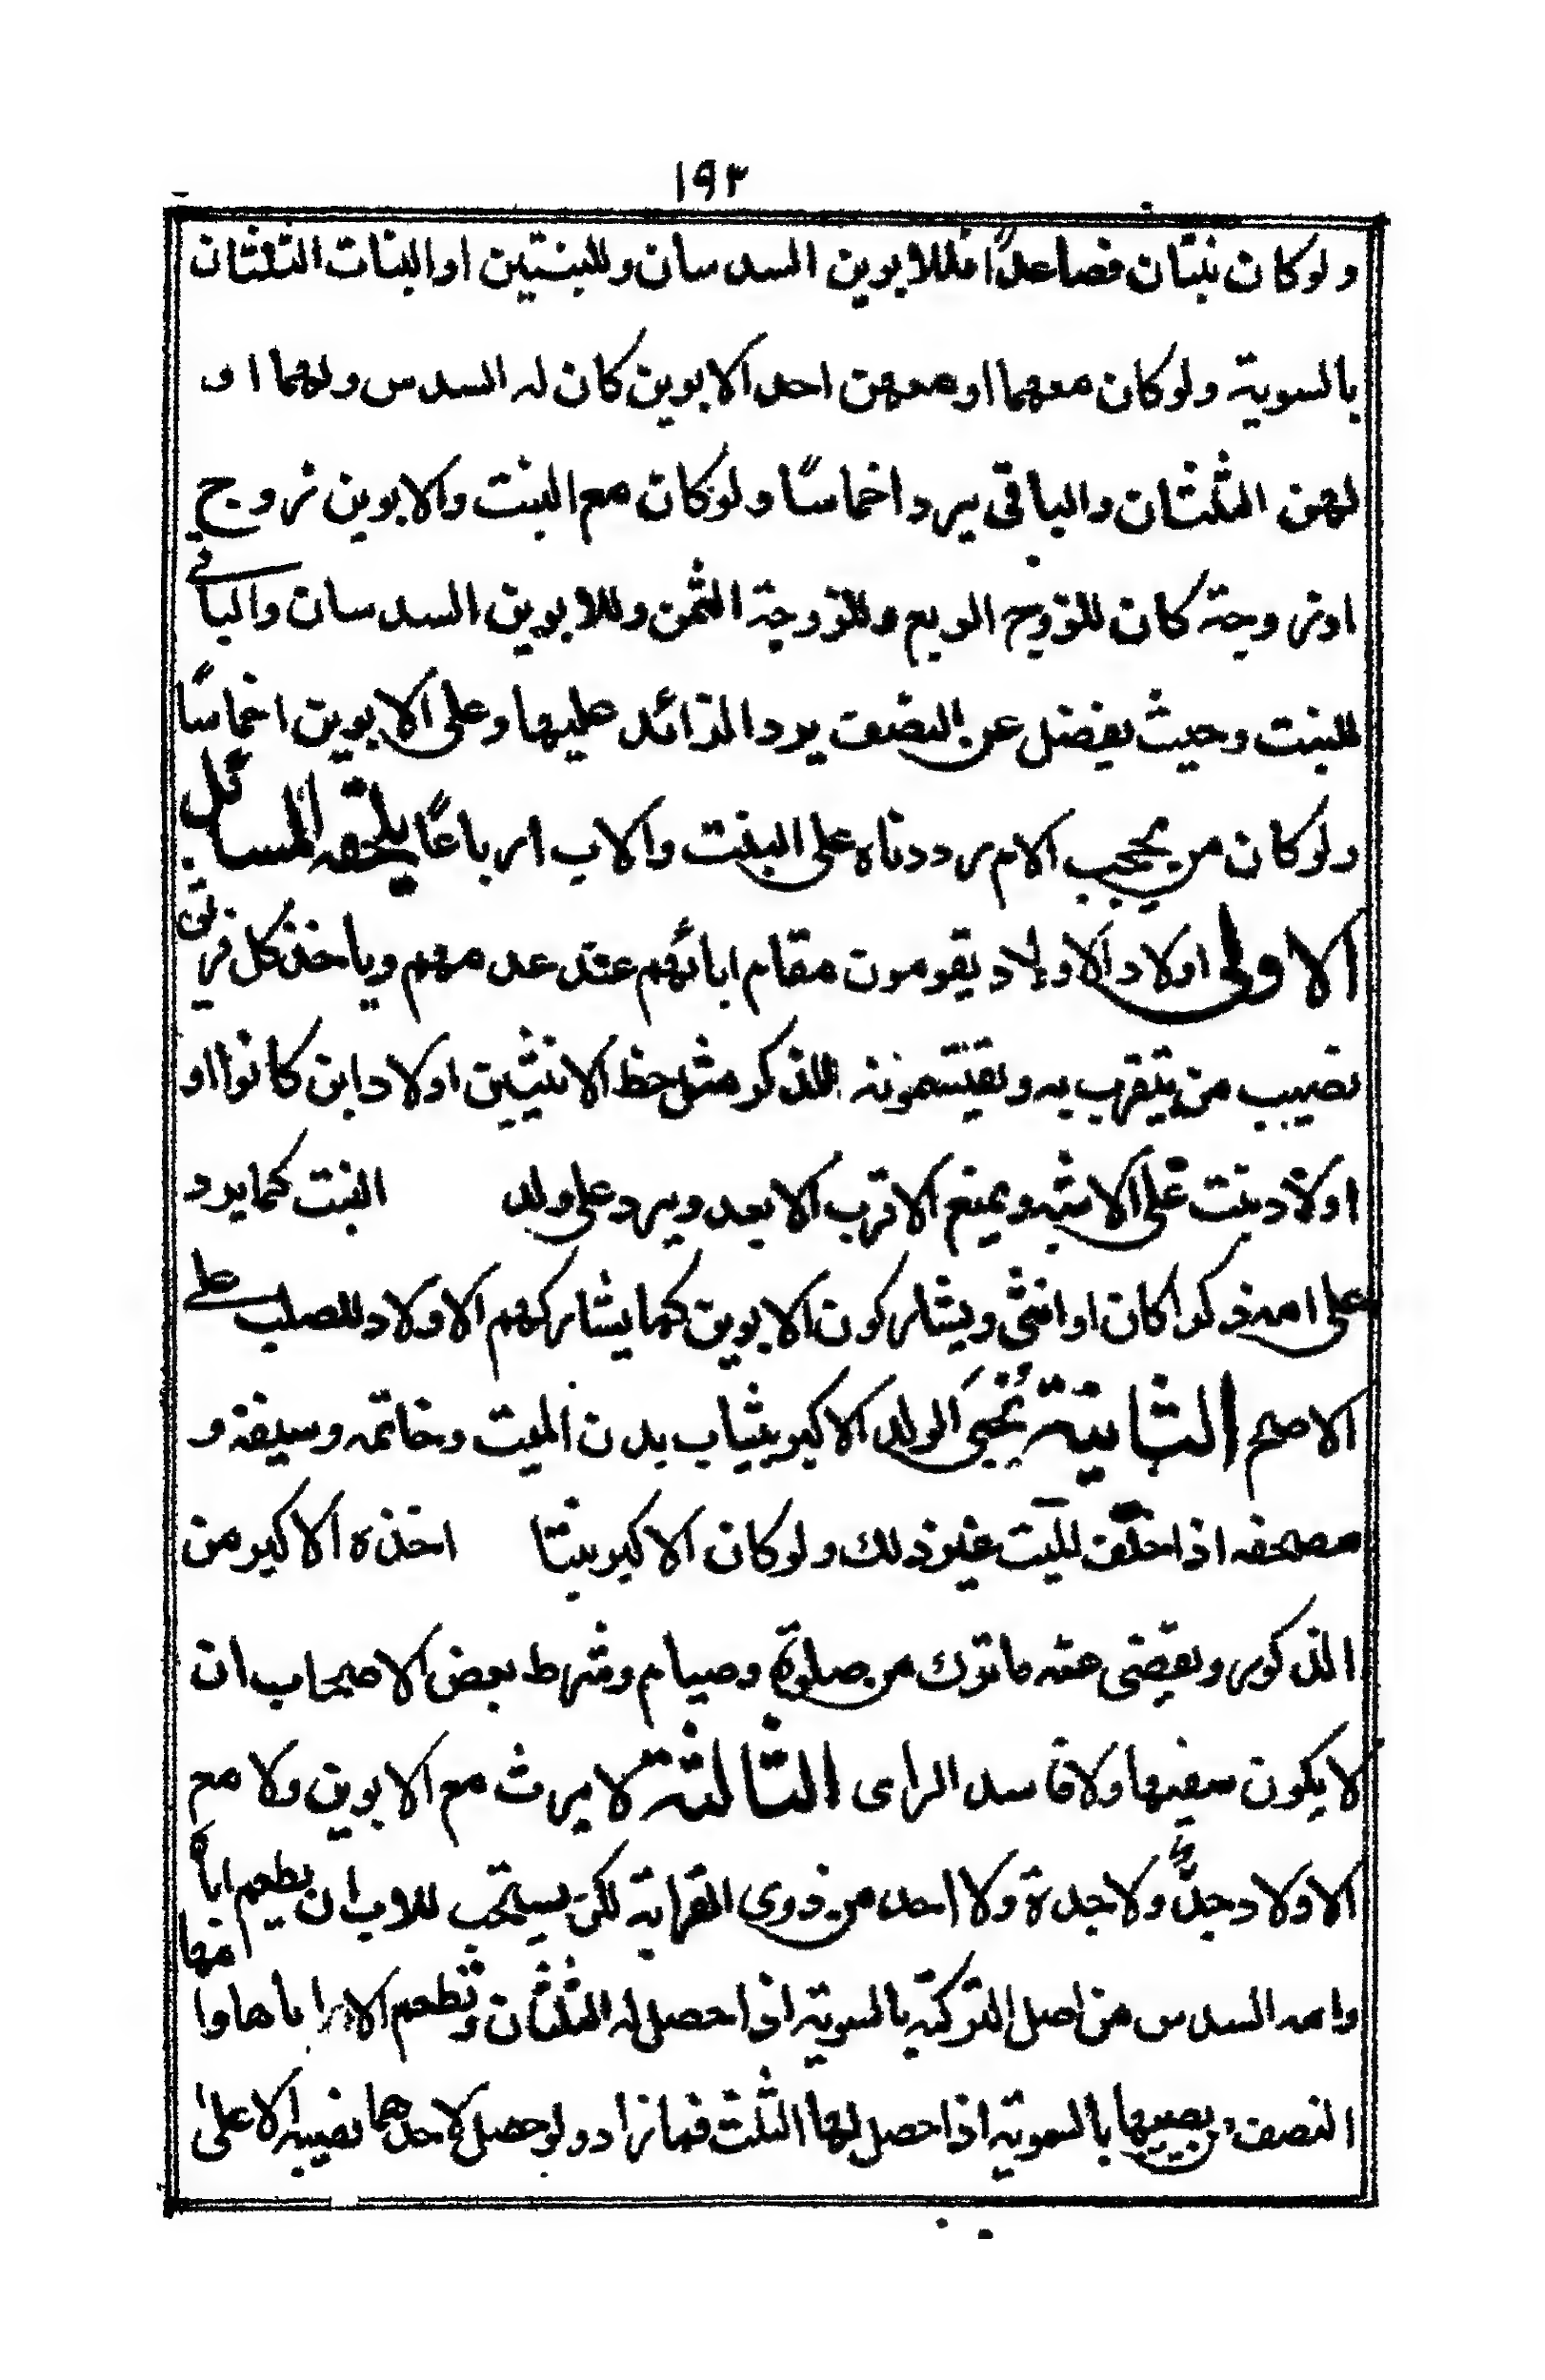 ١٩٣
ولوكان بنتان فصاعدًا فللابوين السدسان وللبنتين او البنات الثلثان
بالسوية ولوكان معهما او معهن احد الابوين كان له السدس ولهما او
لهن الثلثان والباقى يرد اخماسًا ولوكان مع البنت والابوين زوج
اوزوجة كان للزوج الربع وللزوجة الثمن وللابوين السدسان والباقى
للبنت وحيث يفضل عن النصف يرد الزائد عليها وعلى الابوين اخماسًا
ولوكان من يحجب الام رددناه على البنت والاب ارباعًا يلحقه المسائل
الاولى اولاد الاولاد يقومون مقام ابائهم عند عدمهم وياخذ كل فريق
نصيب من يتقرب به ويقتسمونه للذكر مثل حظ الانثيين اولاد ابن كانوا او
اولاد بنت على الاشبه ويمنع الاقرب الابعد ويرد على ولد البنت كما يرد
على امه ذكرا كان او انثى ويشاركون الابوين كما يشاركهم الاولاد للصلب على
الاصح الثانية يُحبَى الولد الاكبر بثياب بدن الميت وخاتمه وسيفه و
مصحفه اذا خلّف الميّت غير ذلك ولوكان الاكبر بنتا اخذه الاكبر من
الذكور ويقضى عنه ما ترك من صلوة وصيام وشرط بعض الاصحاب ان
لا يكون سفيها ولا فاسد الراى الثالثة لا يرث مع الابوين ولا مع
الاولاد جدٌّ ولا جدة ولا احد من ذوى القرابة لكن يستحب للاب ان يطعم اباه
وامه السدس من اصل التركة بالسوية اذا حصل له الثلثان وتطعم الام اباها وامها
النصف نصيبها بالسوية اذا حصل لها الثلث فما زاد ولو حصل لاحدهما نصيبه الاعلى